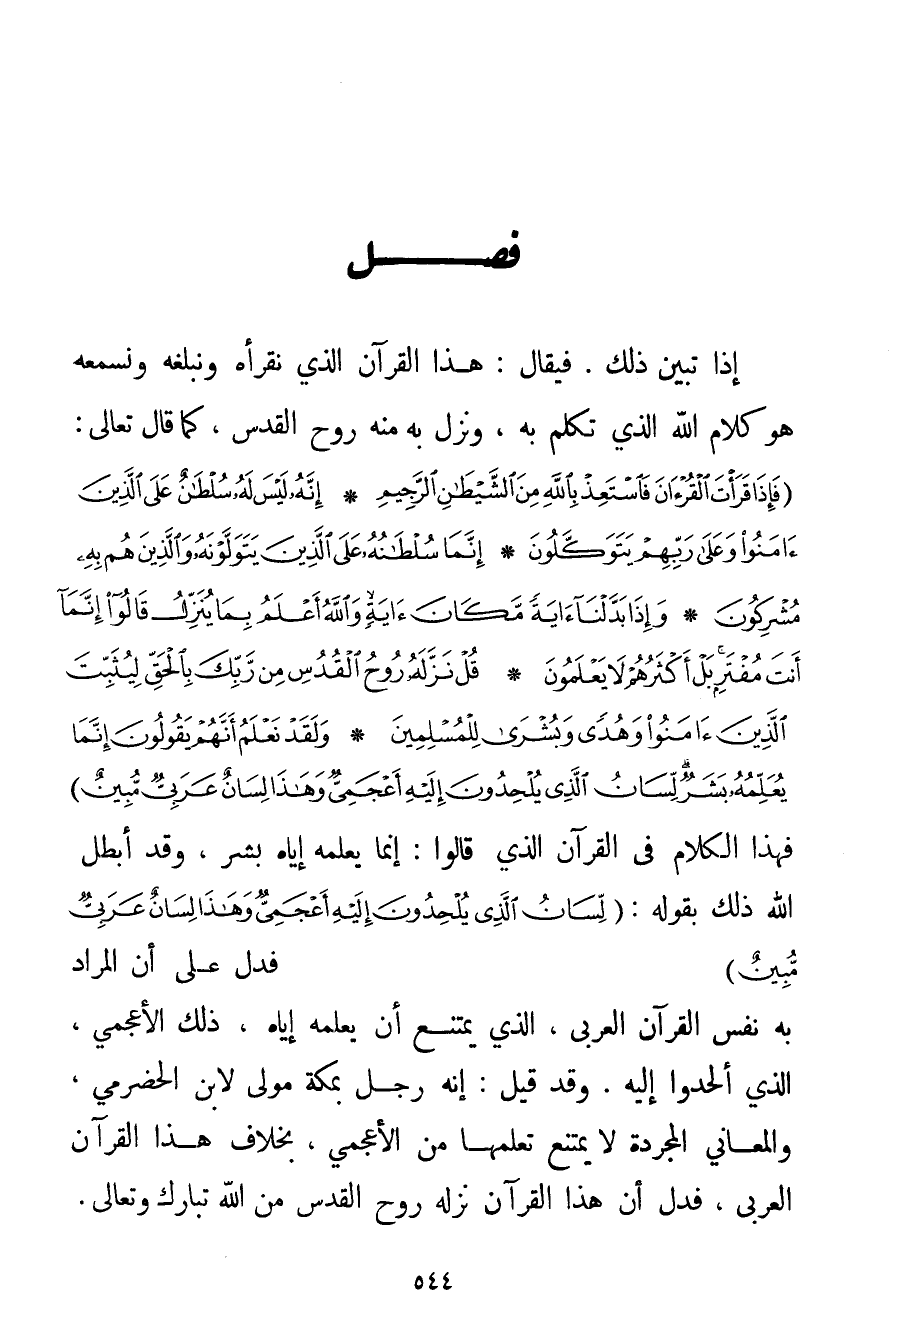 فصـــــــل
إذا تبين ذلك . فيقال : هـذا القرآن الذي نقرأه ونبلغه ونسمعه
هو كلام الله الذي تكلم به ، ونزل به منه روح القدس ، كما قال تعالى :
(فَإِذَا قَرَأْتَ ٱلْقُرْءَانَ فَٱسْتَعِذْ بِٱللَّهِ مِنَ ٱلشَّيْطَٰنِ ٱلرَّجِيمِ * إِنَّهُۥ لَيْسَ لَهُۥ سُلْطَٰنٌ عَلَى ٱلَّذِينَ
ءَامَنُوا۟ وَعَلَىٰ رَبِّهِمْ يَتَوَكَّلُونَ * إِنَّمَا سُلْطَٰنُهُۥ عَلَى ٱلَّذِينَ يَتَوَلَّوْنَهُۥ وَٱلَّذِينَ هُم بِهِۦ
مُشْرِكُونَ * وَإِذَا بَدَّلْنَآ ءَايَةً مَّكَانَ ءَايَةٍ ۙ وَٱللَّهُ أَعْلَمُ بِمَا يُنَزِّلُ قَالُوٓا۟ إِنَّمَآ
أَنتَ مُفْتَرٍۭ ۚ بَلْ أَكْثَرُهُمْ لَا يَعْلَمُونَ * قُلْ نَزَّلَهُۥ رُوحُ ٱلْقُدُسِ مِن رَّبِّكَ بِٱلْحَقِّ لِيُثَبِّتَ
ٱلَّذِينَ ءَامَنُوا۟ وَهُدًى وَبُشْرَىٰ لِلْمُسْلِمِينَ * وَلَقَدْ نَعْلَمُ أَنَّهُمْ يَقُولُونَ إِنَّمَا
يُعَلِّمُهُۥ بَشَرٌ ۗ لِّسَانُ ٱلَّذِى يُلْحِدُونَ إِلَيْهِ أَعْجَمِىٌّ وَهَٰذَا لِسَانٌ عَرَبِىٌّ مُّبِينٌ)
فهذا الكلام فى القرآن الذي قالوا : إنما يعلمه إياه بشر ، وقد أبطل
الله ذلك بقوله : (لِّسَانُ ٱلَّذِى يُلْحِدُونَ إِلَيْهِ أَعْجَمِىٌّ وَهَٰذَا لِسَانٌ عَرَبِىٌّ
مُّبِينٌ) فدل عـلى أن المراد
به نفس القرآن العربى ، الذي يمتنـع أن يعلمه إياه ، ذلك الأعجمي ،
الذي ألحدوا إليه . وقد قيل : إنه رجـل بمكة مولى لابن الحضرمي ،
والمعـاني المجردة لا يمتنع تعلمهـا من الأعجمي ، بخلاف هـذا القرآن
العربى ، فدل أن هذا القرآن نزله روح القدس من الله تبارك وتعالى .
٥٤٤